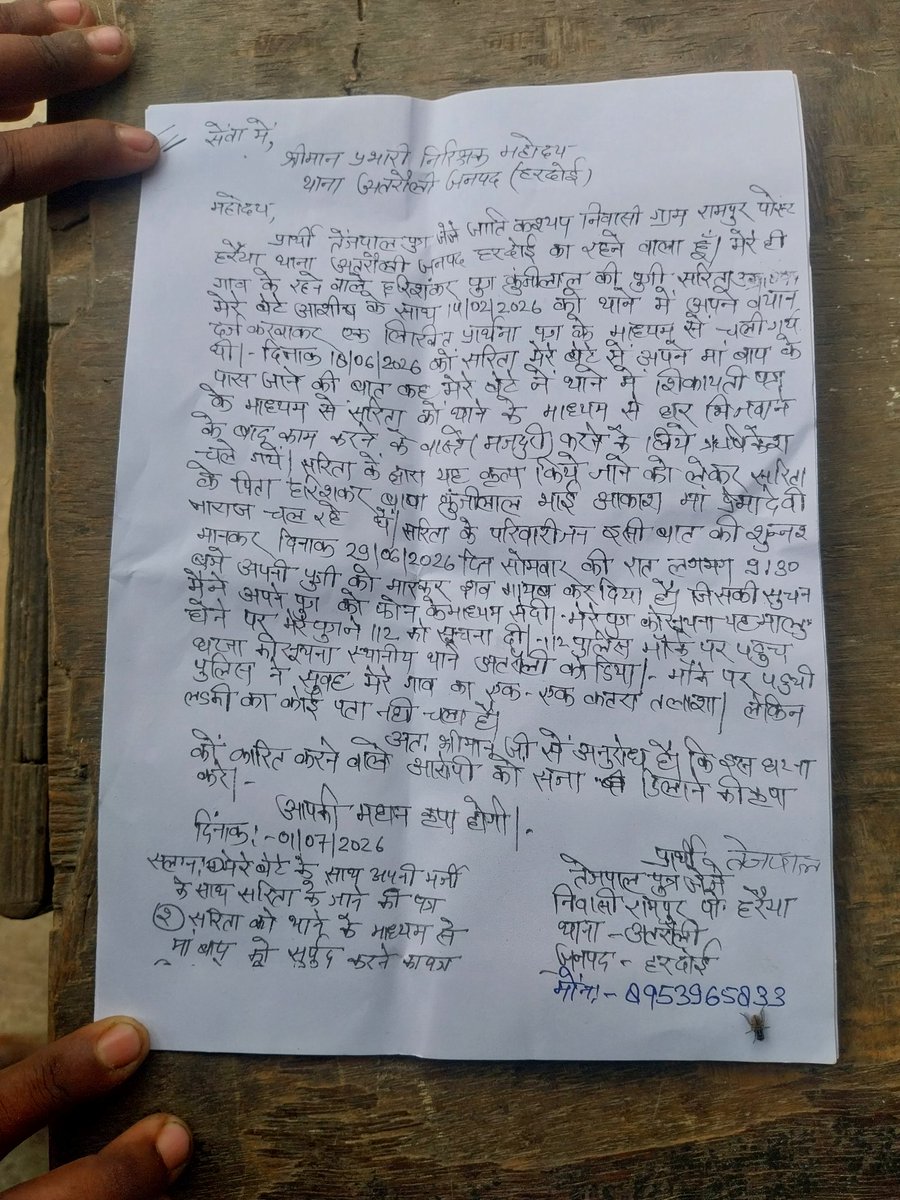 सेवा में,
श्रीमान प्रभारी निरिक्षक महोदय
थाना अतरौली जनपद (हरदोई)
महोदय,
प्रार्थी तेजपाल पुत्र जाति कश्यप निवासी ग्राम रामपुर पोस्ट
हरैया थाना अतरौली जनपद हरदोई का रहने वाला हूँ। मेरे ही
गाव के रहने वाले हरिशंकर पुत्र की पुत्री सरिता
मेरे बेटे आशीष के साथ 14/02/2026 को थाने में अपने वयान
दर्ज करवाकर एक लिखित प्रार्थना पत्र के माध्यम से चली गयी
थी।- दिनाक 18/06/2026 को सरिता मेरे बेटे से अपने मां बाप के
पास जाने की बात कह मेरे बेटे ने थाने में शिकायती पत्र
के माध्यम से सरिता को थाने के माध्यम से भिजवाने
के बाद काम करने के वास्ते (मजदुरी) करने के लिये
चले गये। सरिता के द्वारा यह कृत्य किये जाने को लेकर सरिता
के पिता हरिशंकर बाबा भाई आकाश मां प्रेमादेवी
नाराज चल रहे थे। सरिता के परिवारीजन इसी बात की
मानकर दिनाक 29/06/2026 दिन सोमवार की रात लगभग 9:30
बजे अपनी पुत्री को मारकर शव गायब कर दिया है। जिसकी सुचना
मैंने अपने पुत्र को फोन के माध्यम से दी।- मेरे पुत्र को सूचना यह मालुम
होने पर मेरे पुत्र ने 112 को सूचना दी।- 112 पुलिस मौके पर पहुच
घटना की सूचना स्थानीय थाने अतरौली को दिया।- मौके पर पहुची
पुलिस ने सुवह मेरे गाव का एक-एक कतरा तलाशा। लेकिन
लडकी का कोई पता नही चला है।
अतः श्रीमान जी से अनुरोध है। कि इस घटना
को कारित करने वाले आरोपी को सजा दिलाने की कृपा
करे।-
आपकी महान कृपा होगी।-
दिनांक:-01/07/2026
सलग्न: मेरे बेटे के साथ अपनी मर्जी
के साथ सरिता के जाने की पत्र
② सरिता को थाने के माध्यम से
मा बाप को सुर्पुद करने का पत्र
प्रार्थी तेजपाल
तेजपाल पुत्र
निवासी रामपुर पो. हरैया
थाना - अतरौली
जनपद - हरदोई
मोन:- 8953965833